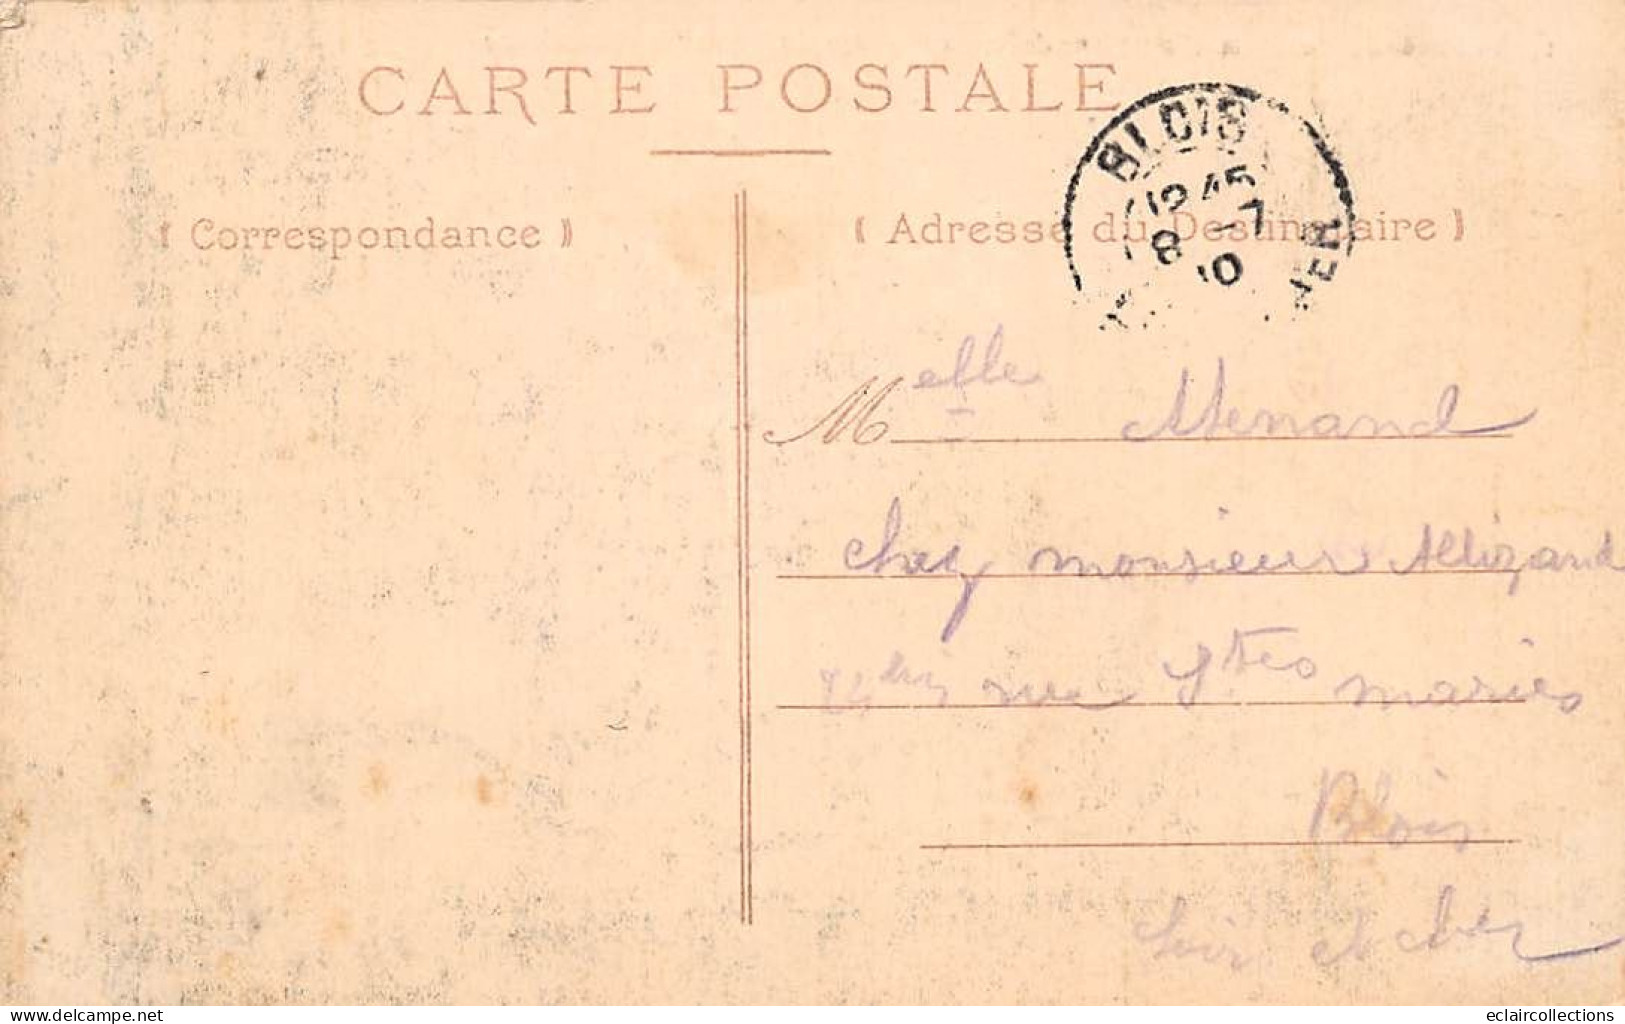 CARTE POSTALE
BLOIS
12 45
8 -7
10
CHER
Correspondance
Adresse du Destinataire
Melle Menand
chez monsieur Allizard
24 bis rue Stes maries
Blois
Loir et cher
www.delcampe.net
eclaircollections